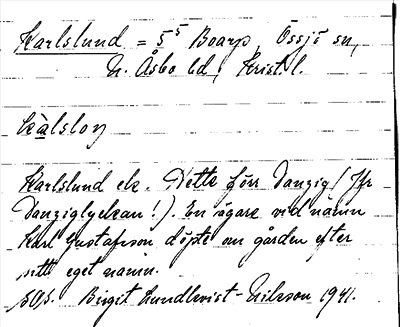 Karlslund = 5⁵ Boarp, Össjö sn,
N. Åsbo hd, Krist. l.
kàlsloŋ
Karlslund etc. Detta förr Danzig (Jfr
Danziglyckan!). En ägare vid namn
Karl Gustafsson döpte om gården efter
sitt eget namn.
Birgit Lundkvist-Nilsson 1941.